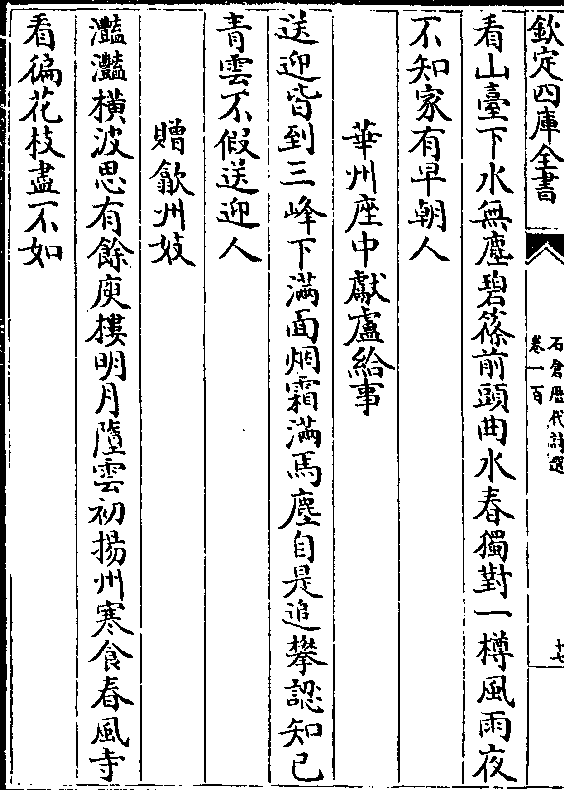 欽定四庫全書
石倉歷代詩選
卷一百
十七
看山臺下水無塵碧篠前頭曲水春獨對一樽風雨夜
不知家有早朝人
華州座中獻盧給事
送迎皆到三峰下滿面烟霜滿馬塵自是追攀認知己
青雲不假送迎人
贈歙州妓
灩灩橫波思有餘庾樓明月墮雲初揚州寒食春風寺
看徧花枝盡不如